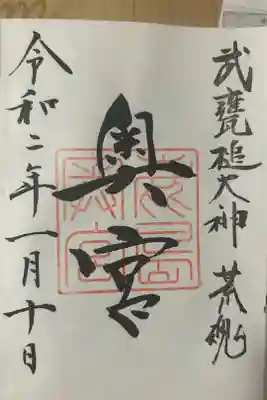 武甕槌大神 荒魂
奥宮
令和二年一月十日